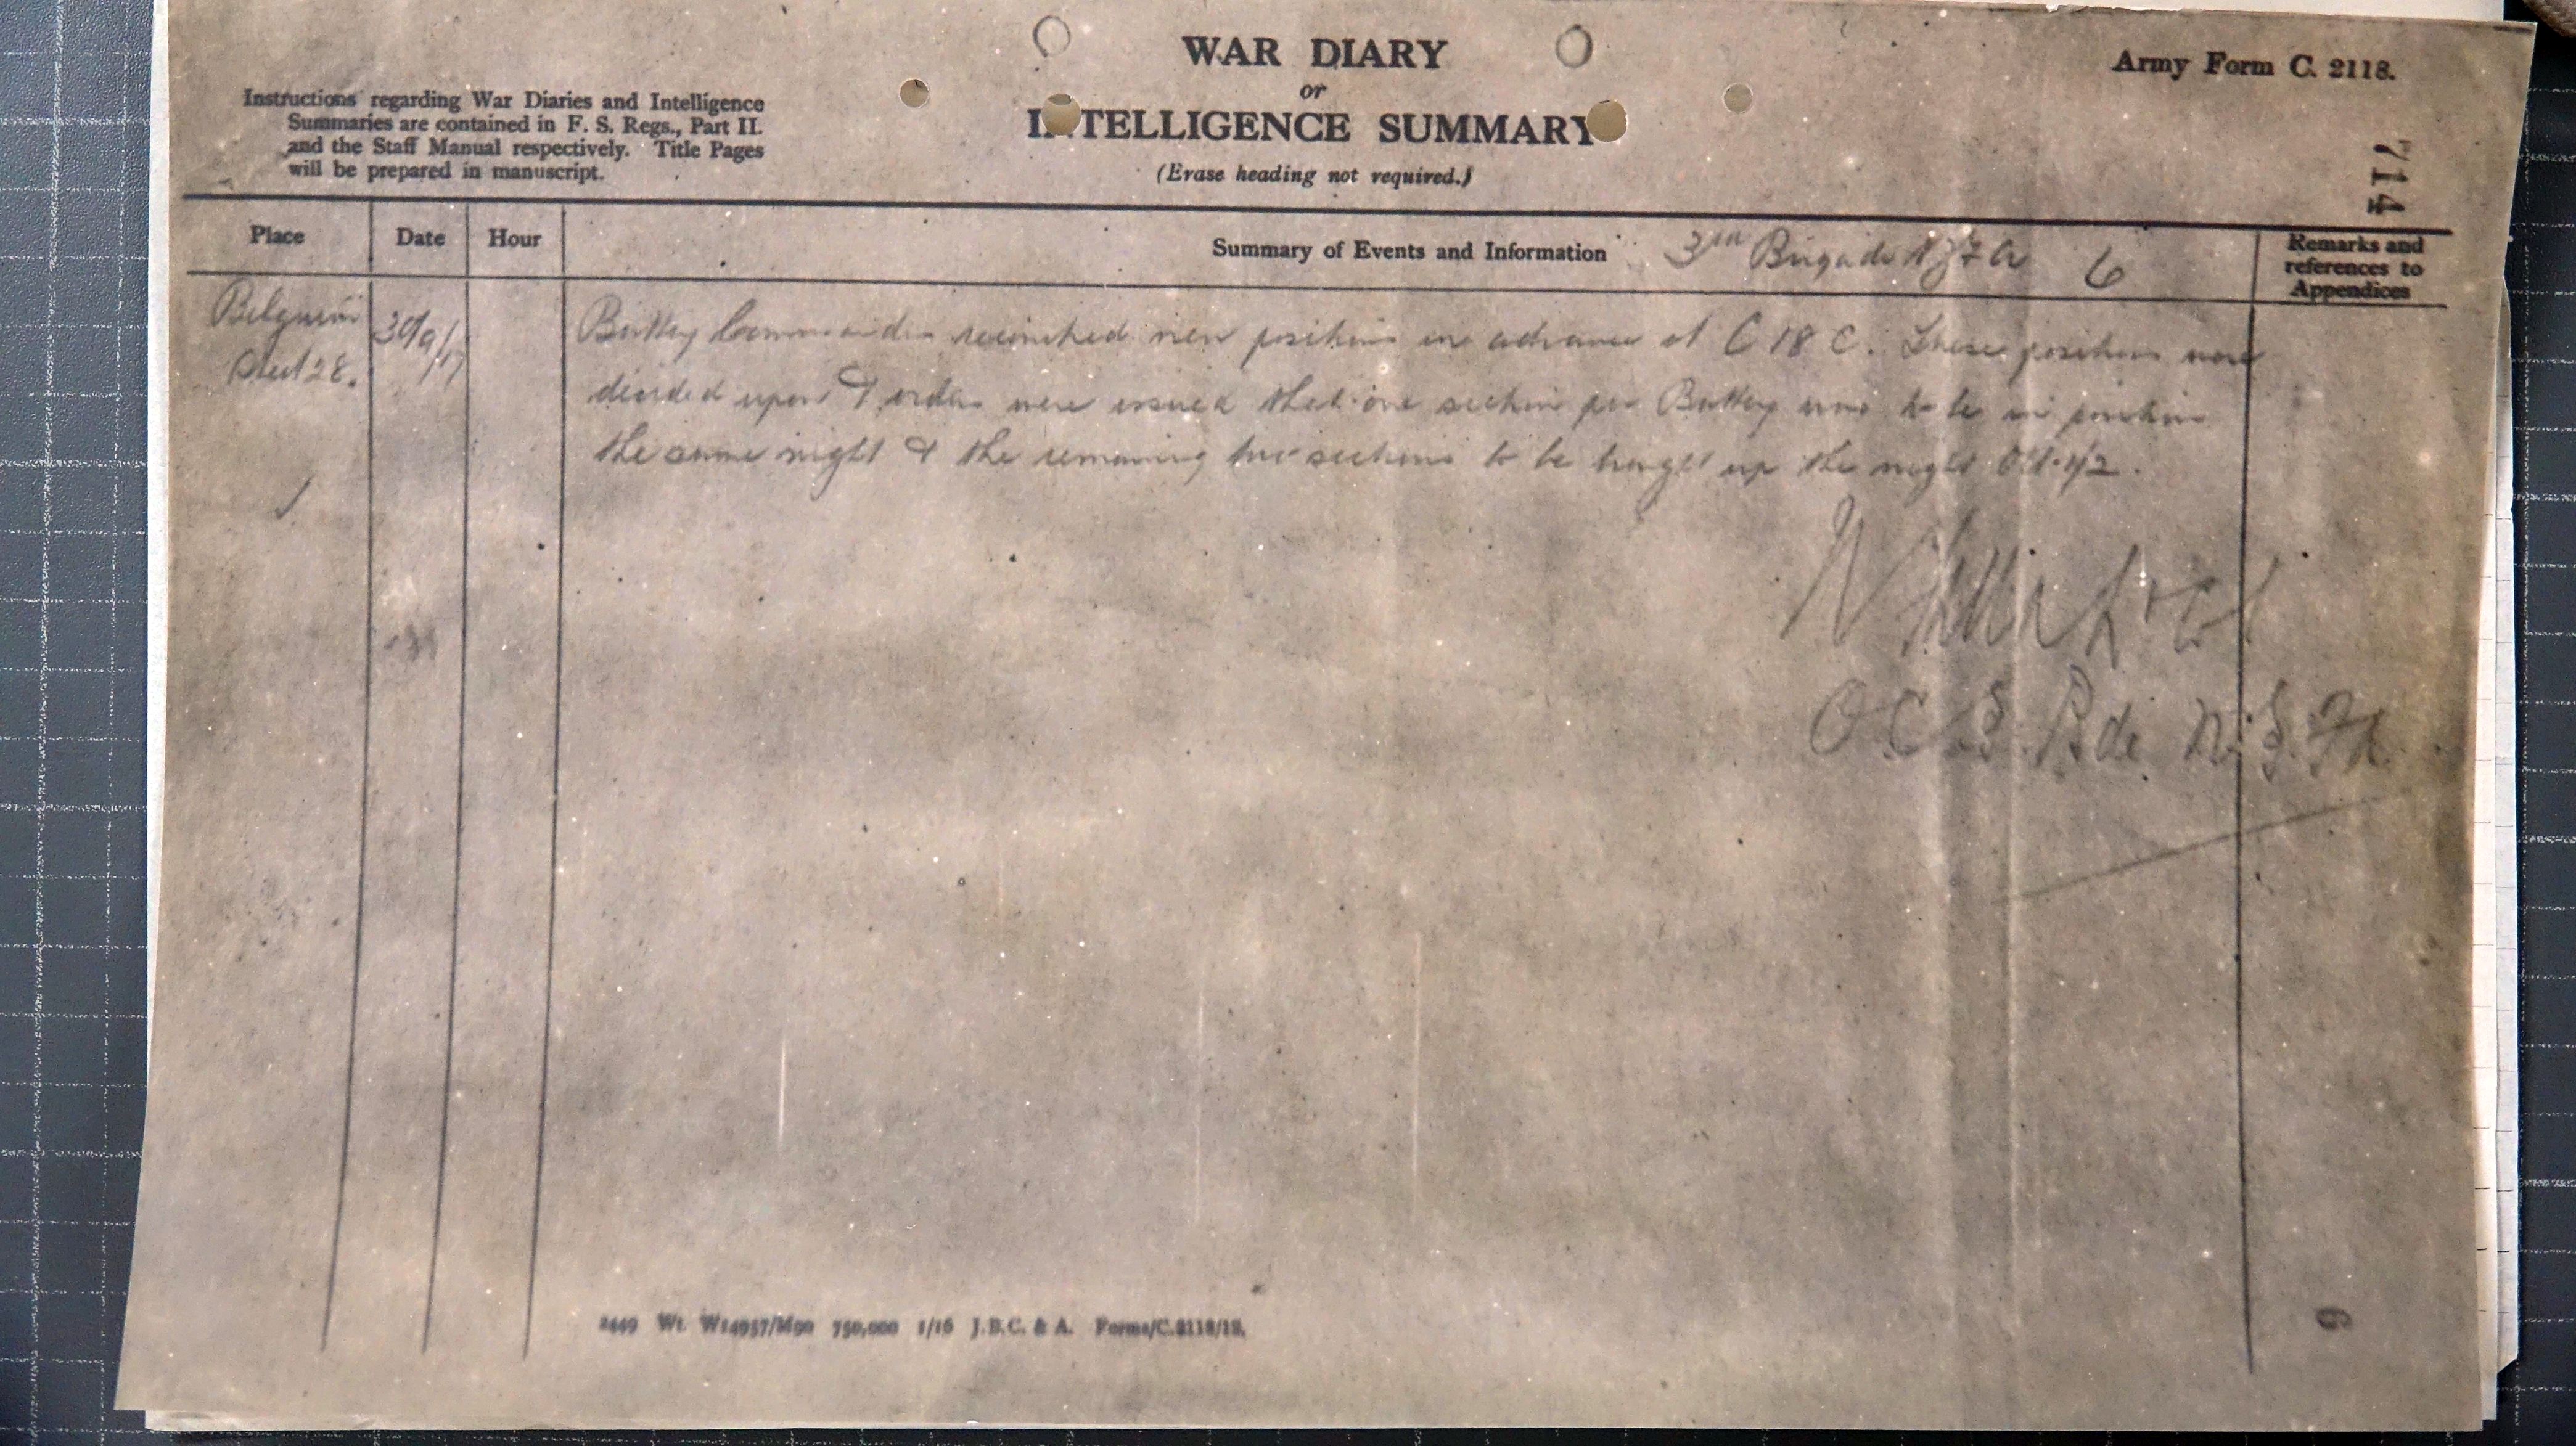 WAR DIARY
or
INTELLIGENCE SUMMARY
(Erase heading not required.)
Army Form C. 2118.
Instructions regarding War Diaries and Intelligence
Summaries are contained in F. S. Regs., Part II.
and the Staff Manual respectively. Title Pages
will be prepared in manuscript.
714
Place
Date
Hour
Summary of Events and Information
3rd Brigade NZFA 6
Remarks and
references to
Appendices
Belgium
28.
30/9/17
Battery Commanders new positions in advance at C 18 C. These positions were
decided upon & orders were issued that one section per Battery was to be in position
the same night & the remaining two sections to be brought up the night Oct 1/2.
O.C. 3 Bde N.Z.FA
2449 Wt. W14957/M90 750,000 1/16 J.B.C. & A. Forms/C.2118/12.
6